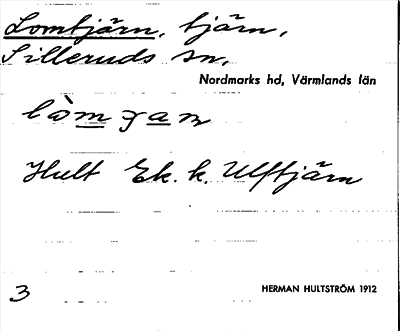 Lomtjärn, tjärn,
Silleruds sn,
Nordmarks hd, Värmlands län
Hult Ek. k. Ulftjärn
3 HERMAN HULTSTRÖM 1912